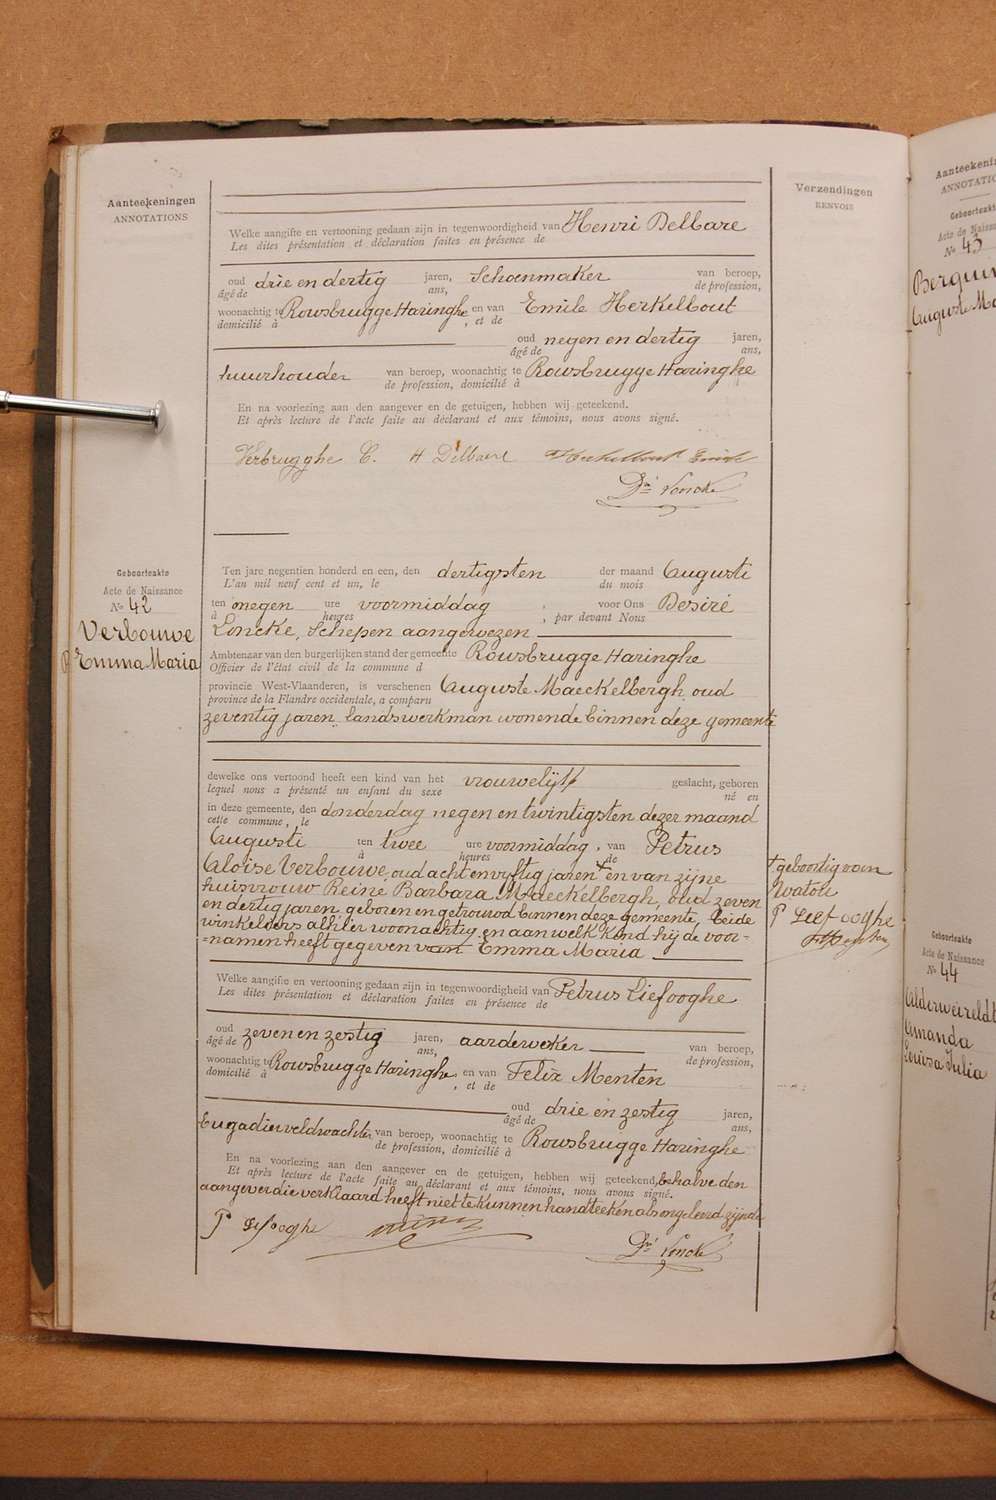 Aanteekeningen
ANNOTATIONS
Verzendingen
RENVOIS
Welke aangifte en vertooning gedaan zijn in tegenwoordigheid van Henri Delbare
Les dites présentation et déclaration faites en présence de
oud drie en dertig jaren, Schoenmaker van beroep,
âgé de ans, de profession,
woonachtig te Rousbrugge Haringhe en van Emile Herkelbout
domicilié à , et de
oud negen en dertig jaren,
âgé de ans,
huurhouder van beroep, woonachtig te Rousbrugge Haringhe
de profession, domicilié à
En na voorlezing aan den aangever en de getuigen, hebben wij geteekend.
Et après lecture de l'acte faite au déclarant et aux témoins, nous avons signé.
Verbrugghe C. H Delbaere
Dré Loncke
Geboorteakte
Acte de Naissance
Nº 42
Verbouwe
Emma Maria
Ten jare negentien honderd en een, den dertigsten der maand Augusti
L'an mil neuf cent et un, le du mois
ten negen ure voormiddag , voor Ons Desiré
à heures , par devant Nous
Loncke, Schepen aangewezen
Ambtenaar van den burgerlijken stand der gemeente Rousbrugge Haringhe
Officier de l'état civil de la commune d
provincie West-Vlaanderen, is verschenen Auguste Maeckelbergh, oud
province de la Flandre occidentale, a comparu
zeventig jaren, landswerkman wonende binnen deze gemeente
dewelke ons vertoond heeft een kind van het vrouwelijk geslacht, geboren
lequel nous a présenté un enfant du sexe né en
in deze gemeente, den donderdag negen en twintigsten dezer maand
cette commune, le
Augusti ten twee ure voormiddag, van Petrus
à heures de
Aloise Verbouwe, oud acht en vyftig jaren + en van zijne
huisvrouw Reine Barbara Maeckelbergh, oud zeven
en dertig jaren, geboren en getrouwd binnen deze gemeente, beide
winkeliers alhier woonachtig, en aan welk kind hij de voor-
=namen heeft gegeven van Emma Maria
+ geboortig van
Watou
P Leefooghe
Welke aangifte en vertooning gedaan zijn in tegenwoordigheid van Petrus Liefooghe
Les dites présentation et déclaration faites en présence de
oud zeven en zestig jaren, aardewerker van beroep,
âgé de ans, de profession,
woonachtig te Rousbrugge Haringhe, en van Felix Menten
domicilié à , et de
oud drie en zestig jaren,
âgé de ans,
Brigadier veldwachter van beroep, woonachtig te Rousbrugge Haringhe
de profession, domicilié à
En na voorlezing aan den aangever en de getuigen, hebben wij geteekend, behalve den
Et après lecture de l'acte faite au déclarant et aux témoins, nous avons signé.
aangever die verklaard heeft niet te kunnen handteeken als ongeleerd zijnde
P Lefooghe
Dré Loncke
Aanteekenin
ANNOTATIO
Geboorteakte
Acte de Naissa
Nº 43
Auguste Ma
Geboorteakte
Acte de Naissance
Nº 44
Alderweireldt
Amanda
Louisa Julia